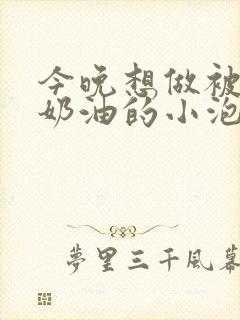 今晚想做被
奶油的小泡
夢里三千風幕